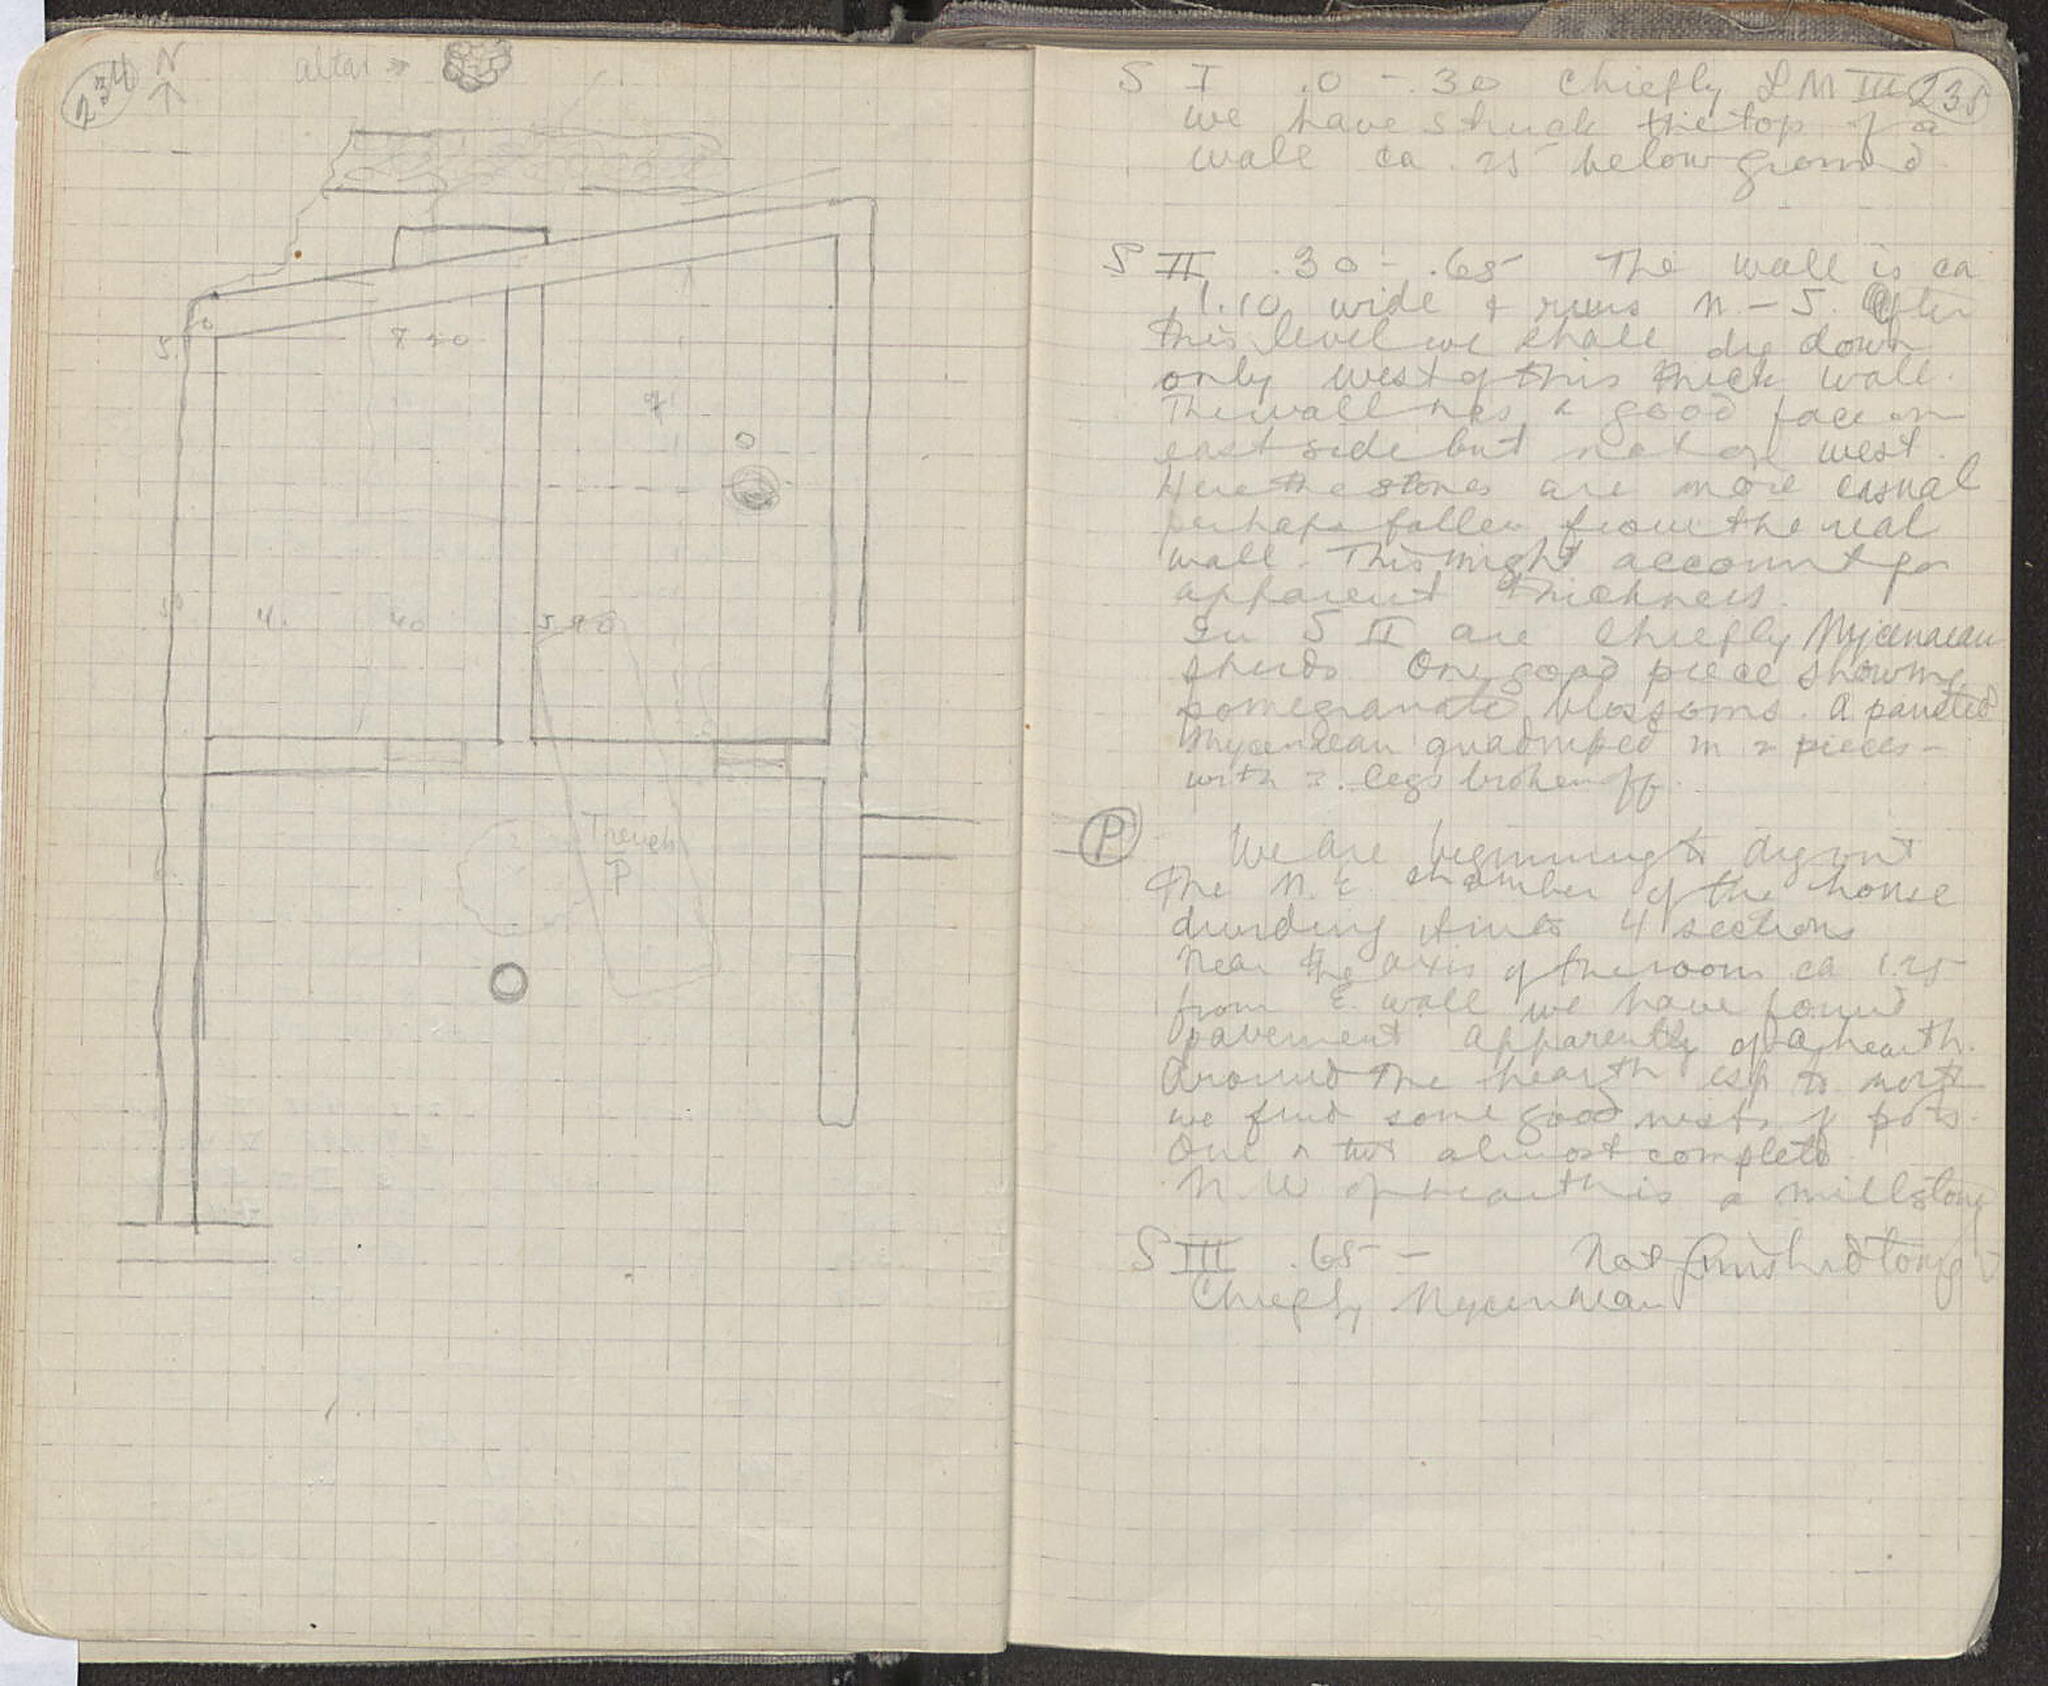 234
N
altar
5.
7.20
4.
40
5.90
Trench
P
235
S I .0 - .30 Chiefly LM III
we have struck the top of a
wall ca .25 below ground
S II .30 - .65 The wall is ca
1.10 wide & runs N - S. After
this level we shall dig down
only west of this thick wall.
The wall has a good face on
east side but not on west.
Here the stones are more casual
perhaps fallen from the real
wall. This might account for
apparent thickness.
In S II are chiefly Mycenaean
sherds. One good piece showing
pomegranate blossoms. A painted
Mycenaean quadruped in 2 pieces -
with 3. legs broken off.
P We are beginning to dig out
the N.E. chamber of the house
dividing it into 4 sections
Near the axis of the room ca 1.25
from E. wall we have found
pavement apparently of a hearth.
Around the hearth esp to north
we find some good nests of pots.
One or two almost complete
N.W. of hearth is a millstone
S III .65 - Not finished
Chiefly Mycenaean